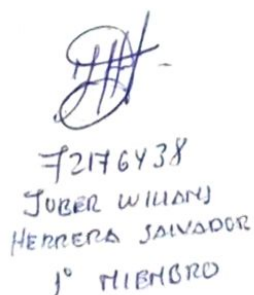 72176438
JOBER WILIANS
HERRERA SALVADOR
1° MIEMBRO